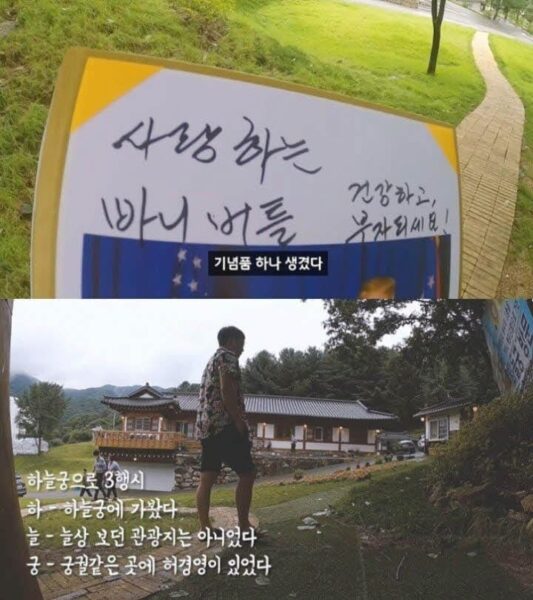 사랑하는
바니 버틀
건강하고,
부자되세요!
기념품 하나 생겼다
하늘궁으로 3행시
하 - 하늘궁에 가봤다
늘 - 늘상 보던 관광지는 아니었다
궁 - 궁궐같은 곳에 허경영이 있었다